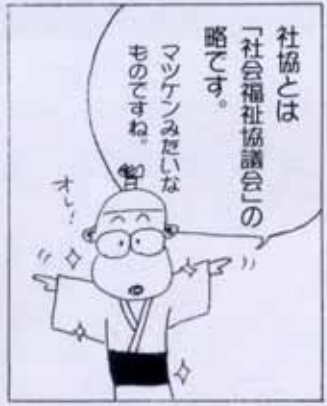 社協とは
「社会福祉協議会」の
略です。
マツケンみたいな
ものですね。
オレ!